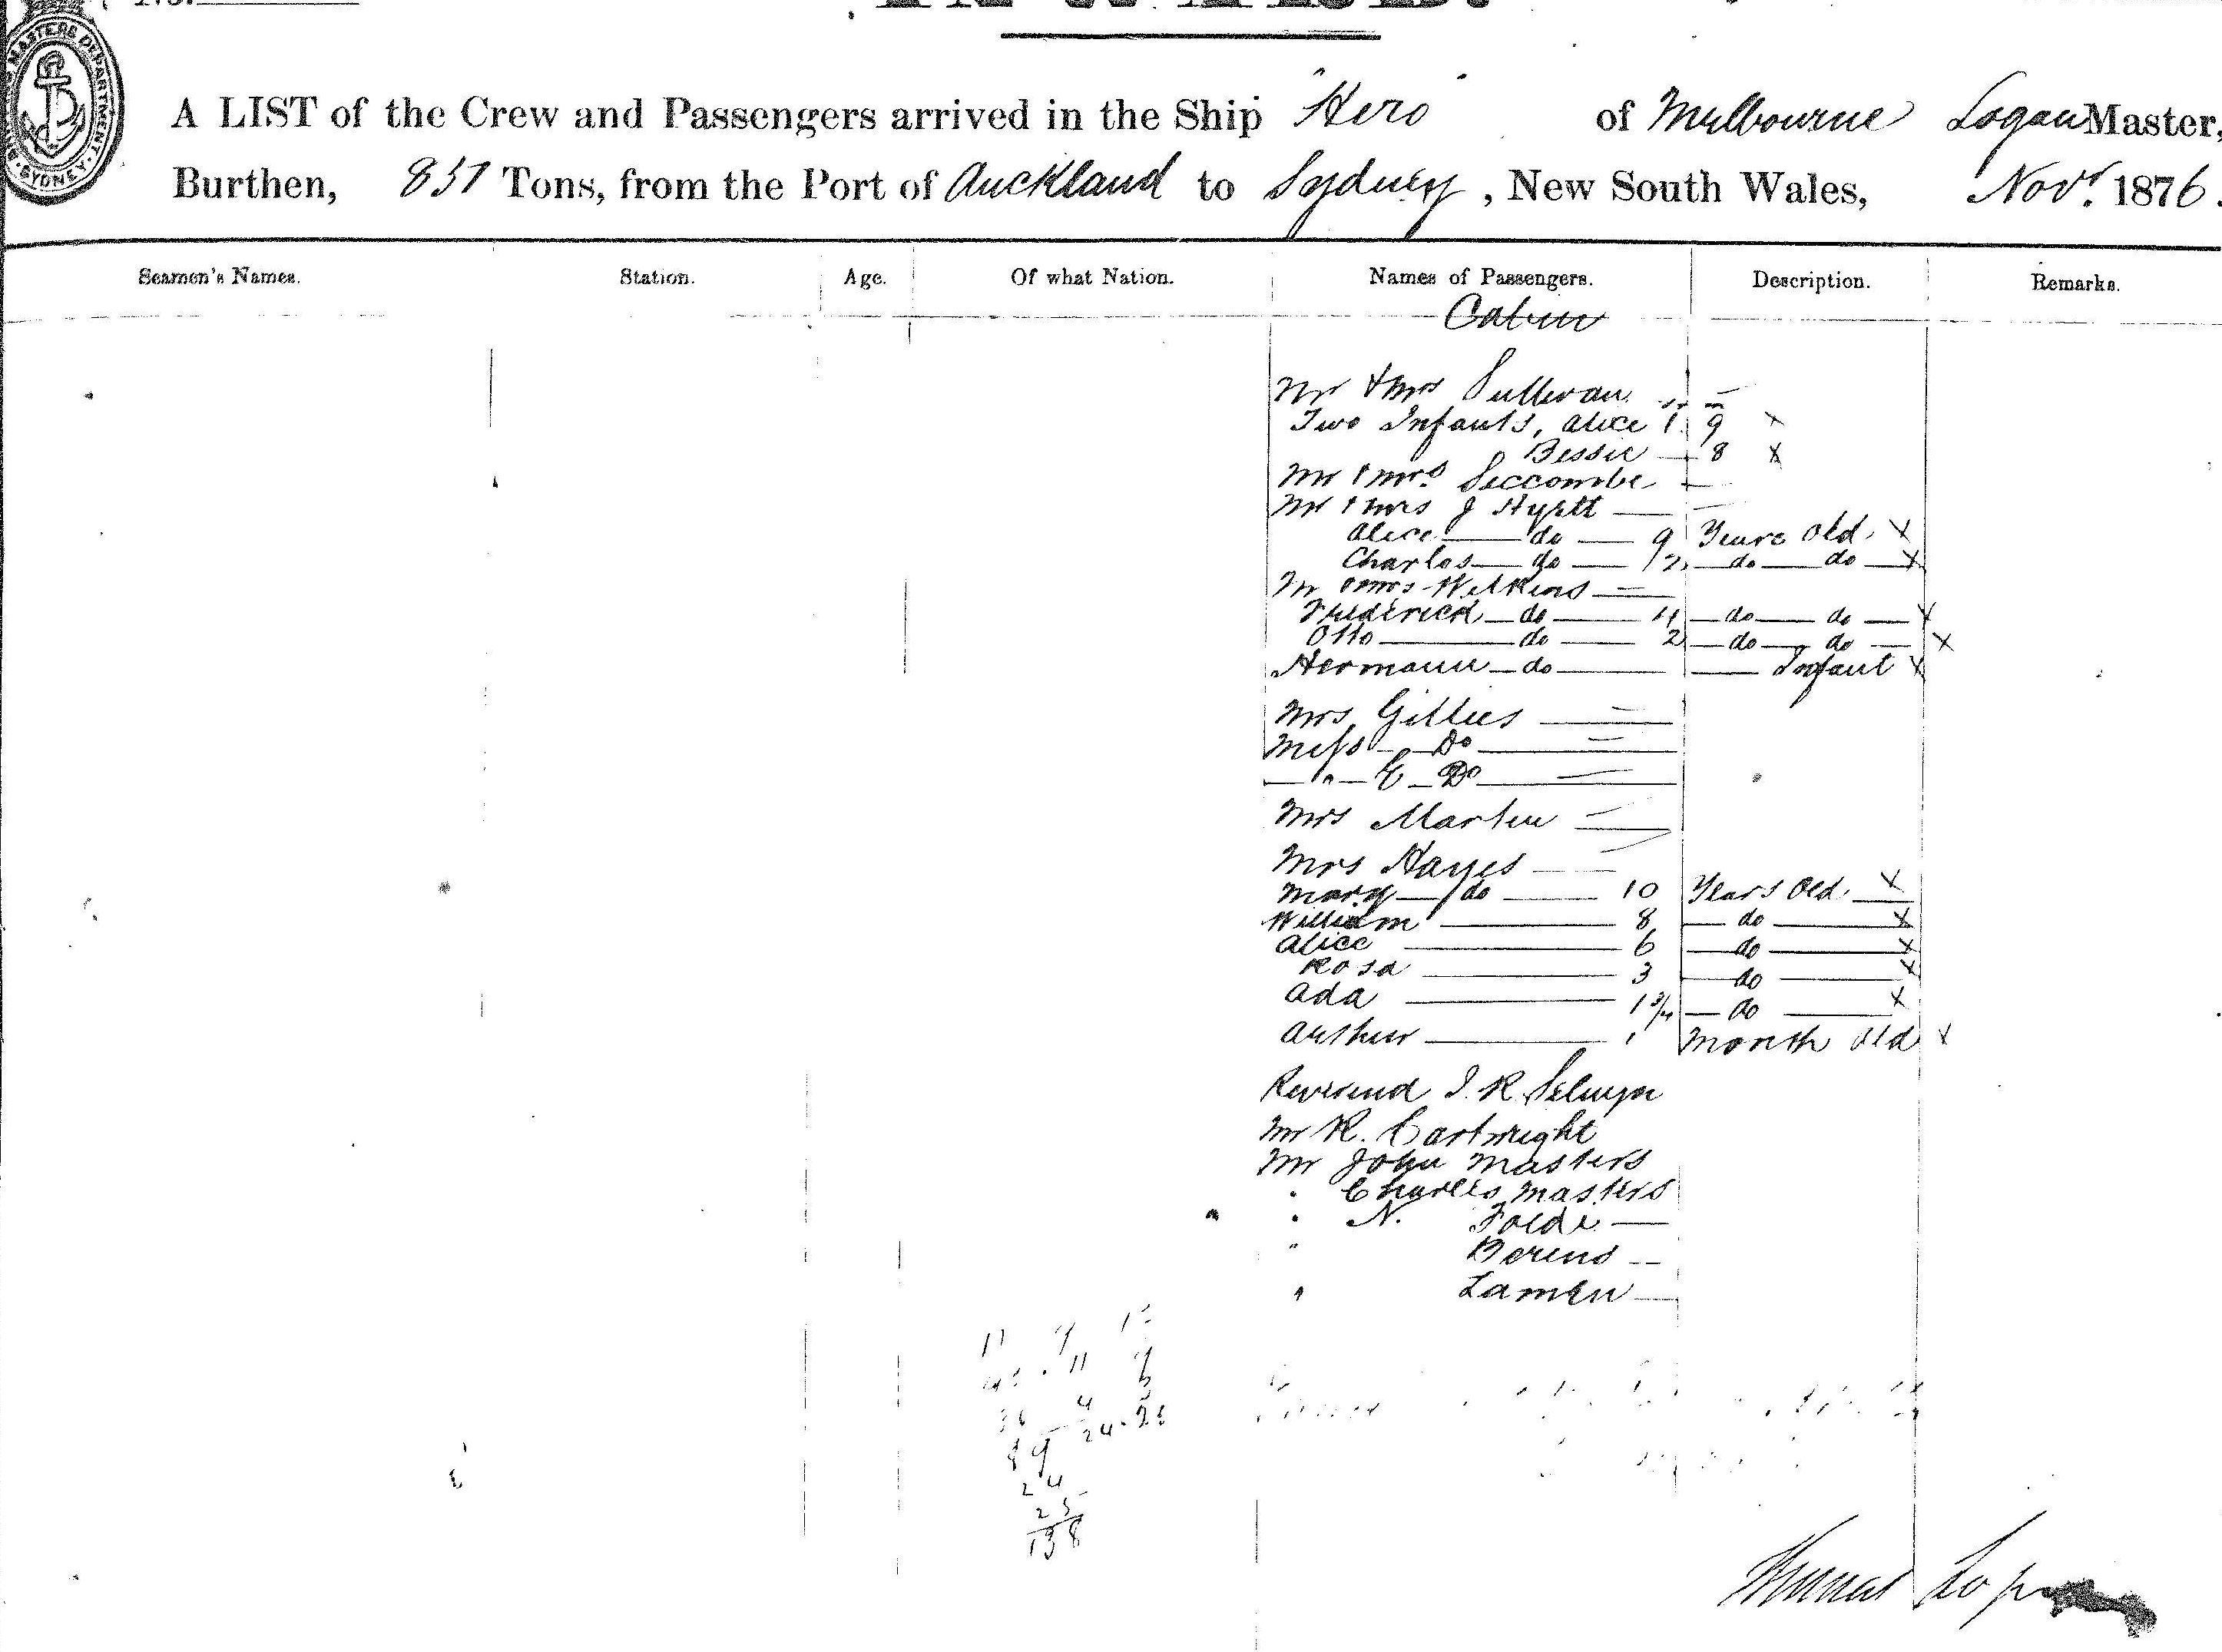 No.
INWARD.
MASTERS DEPARTMENT SYDNEY
A LIST of the Crew and Passengers arrived in the Ship Hero of Melbourne Logan Master,
Burthen, 851 Tons, from the Port of Auckland to Sydney, New South Wales, Novr. 1876.
Seamen's Names. Station. Age. Of what Nation. Names of Passengers. Description. Remarks.
Cabin
Mr & Mrs Sullivan
Two Infants, Alice 1. 9 x
Bessie — 8 x
Mr & Mrs. Seccombe
Mr & Mrs J Hyett
Alice — do — 9 Years Old x
Charles — do — do — do — x
Mr & Mrs Wilkins
Frederick — do — 4 — do — do — x
Otto — do — 2 — do — do — x
Hermann — do — Infant x
Mrs Gillies
Miss — Do
— " — E — Do
Mrs Martin
Mrs Hayes
Mary — do — 10 Years Old x
William — 8 — do — x
Alice — 6 — do — x
Rosa — 3 — do — x
Ada — 1 3/4 — do — x
Arthur — 1 Month Old x
Reverend J. R. Selwyn
Mr R. Cartwright
Mr John Masters
" Charles Masters
" N.
" Berens
" Lamen
11
4
24
89
24
25
138
Logan